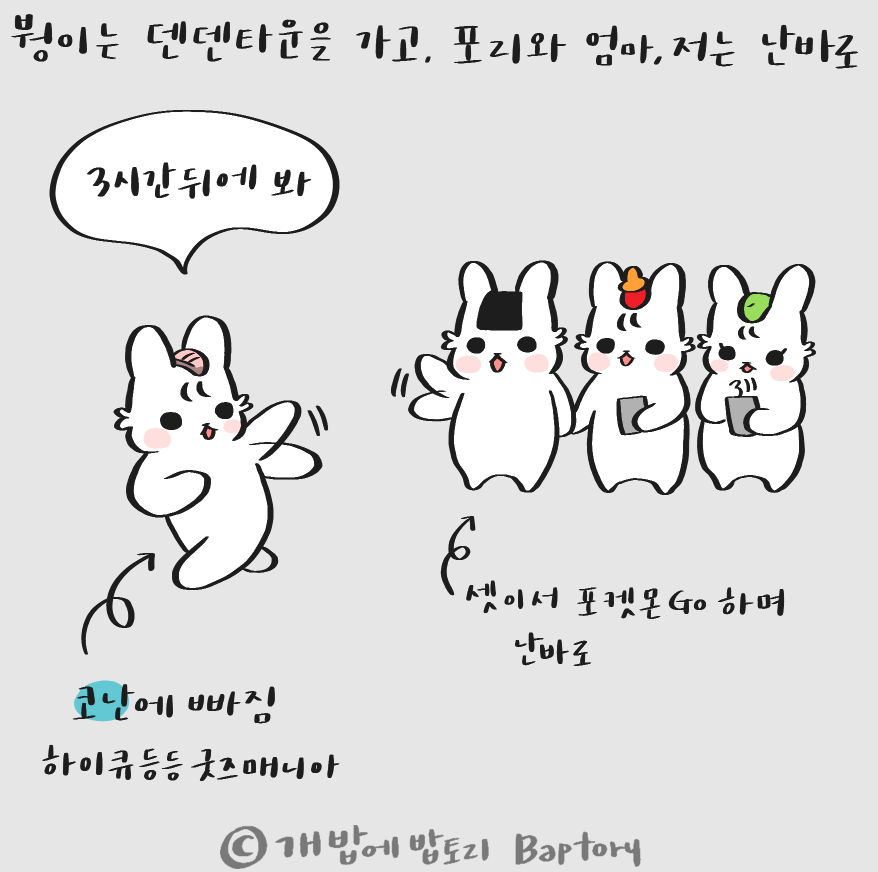 뭥이는 덴덴타운을 가고, 포리와 엄마, 저는 난바로
3시간뒤에 봐
셋이서 포켓몬Go 하며
난바로
코난에 빠짐
하이큐등등 굿즈매니아
© 개밥에 밥토리 Baptory